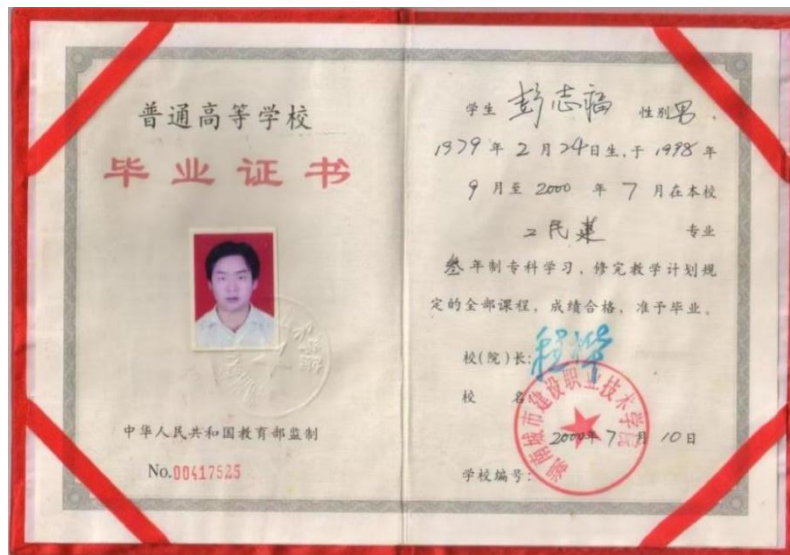 普通高等学校
毕业证书
中华人民共和国教育部监制
No.00417525
学生 彭志福 性别男,
1979年2月24日生,于1998年
9月至2000年7月在本校
工民建 专业
叁年制专科学习,修完教学计划规
定的全部课程,成绩合格,准予毕业。
校(院)长:
校 名:
2000年7月10日
学校编号:
南城市建设职业技术学院